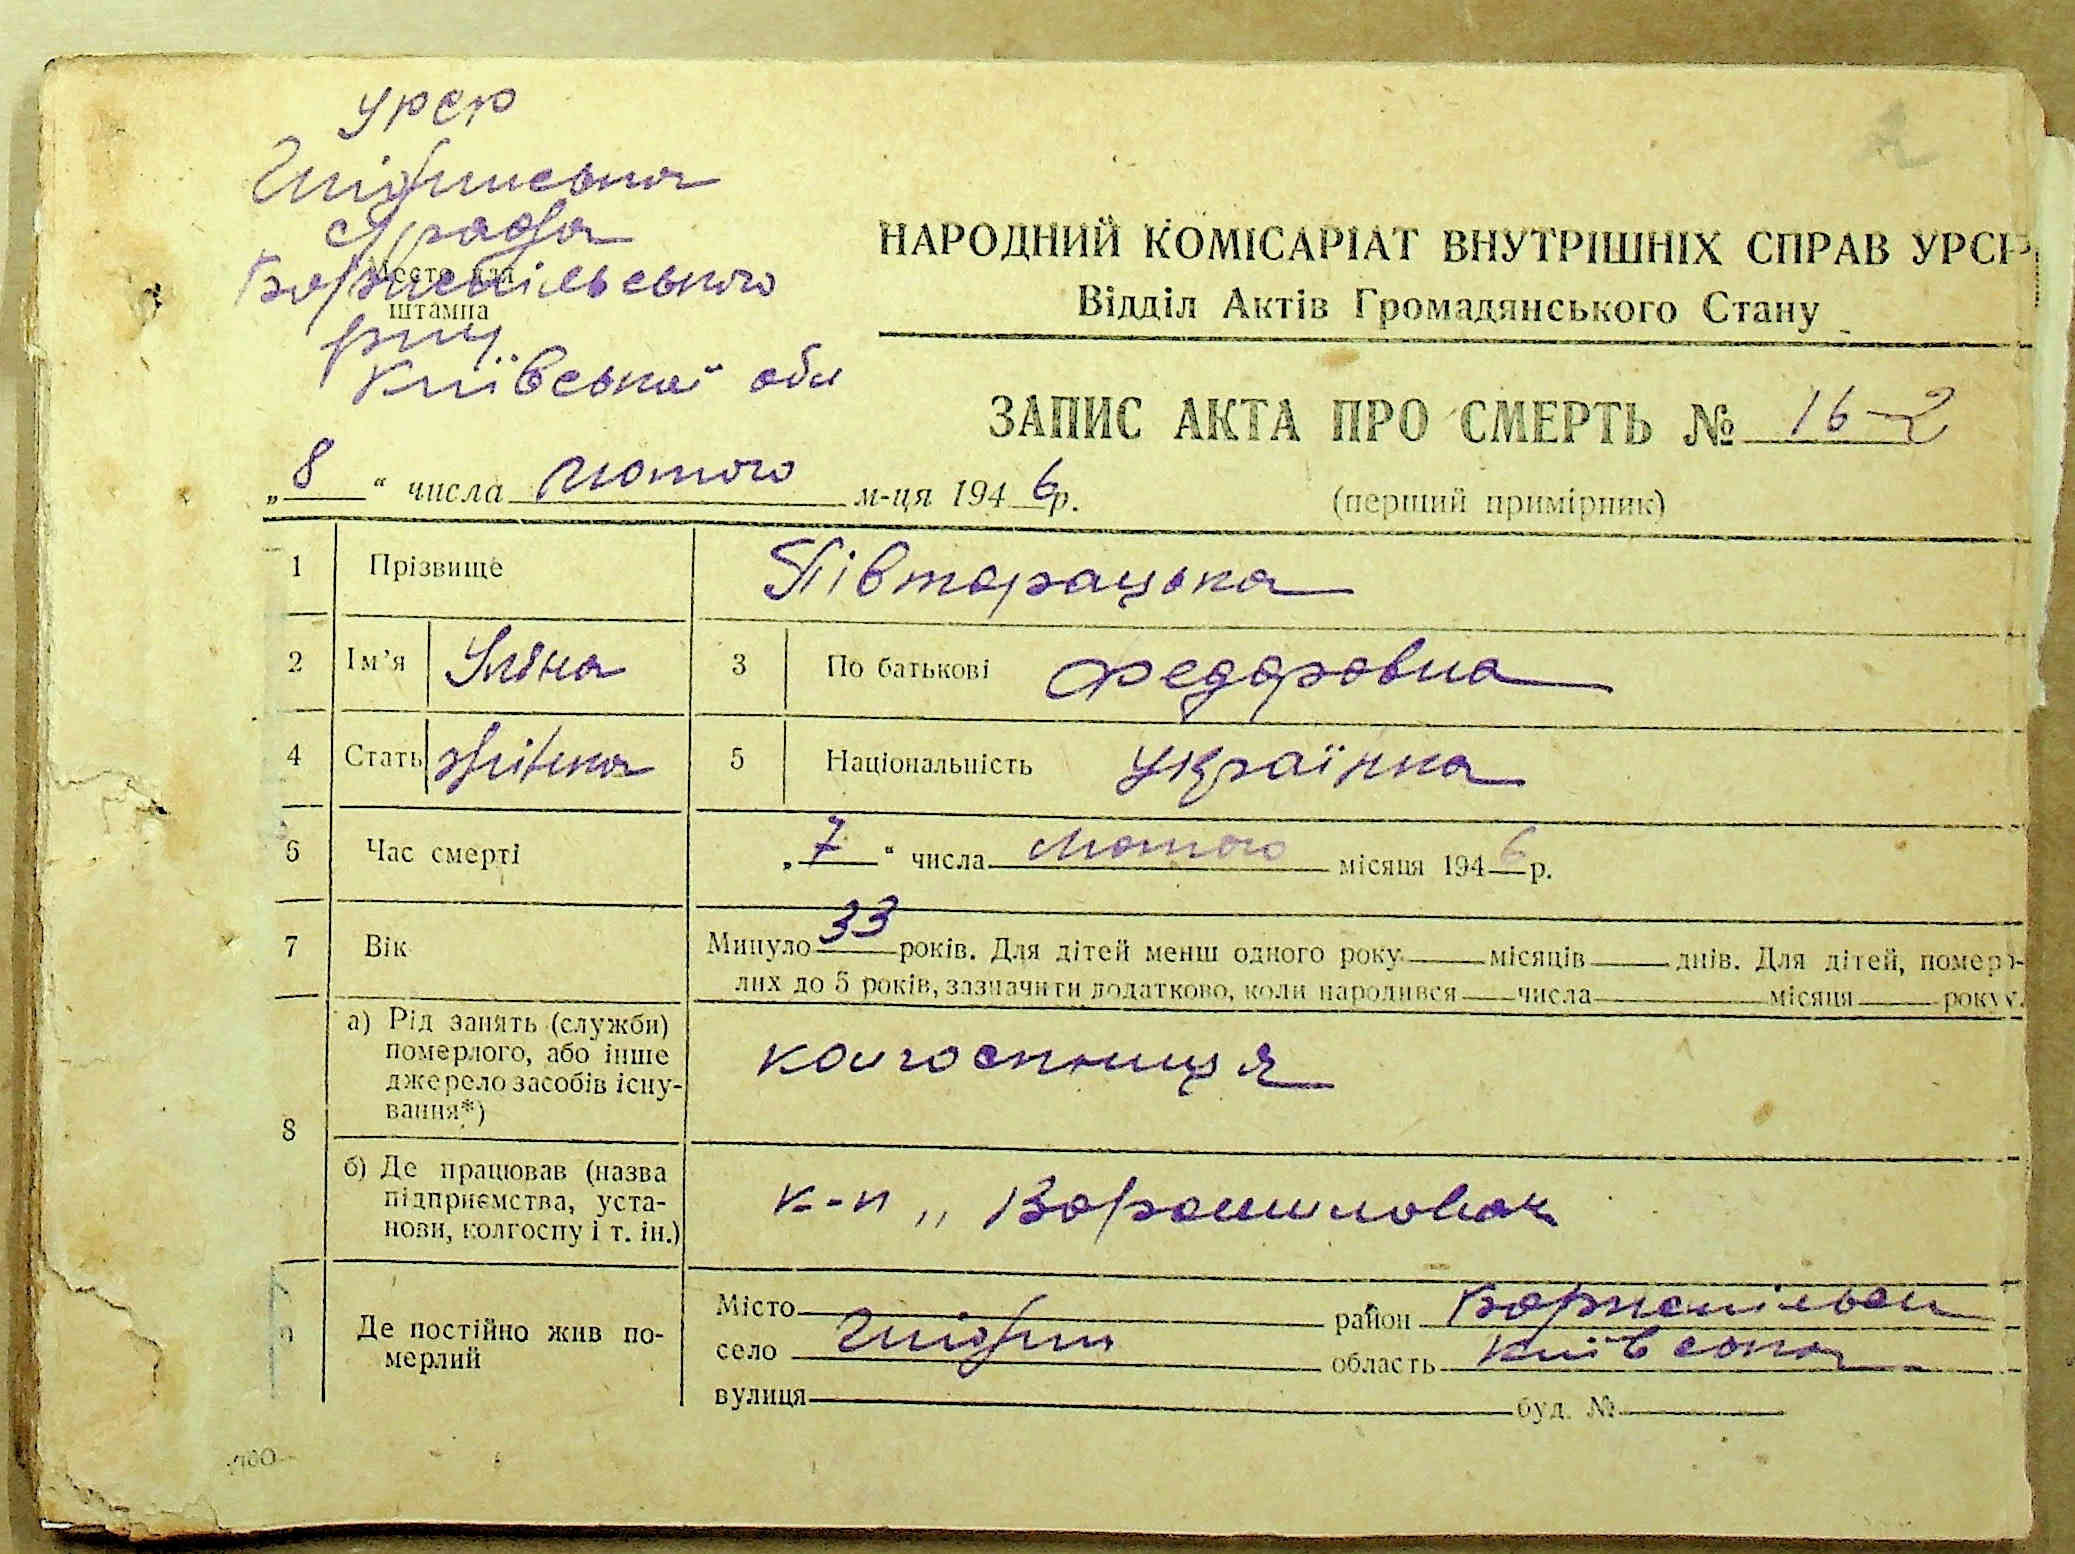 УРСР
Гнідинська
с/рада
Бориспільського
Место для
штампа
р-ну
Київської обл
НАРОДНИЙ КОМІСАРІАТ ВНУТРІШНІХ СПРАВ УРСР
Відділ Актів Громадянського Стану
ЗАПИС АКТА ПРО СМЕРТЬ № 16-2
„8“ числа лютого м-ця 1946 р.
(перший примірник)
1 Прізвище Півторацька
2 Ім'я Уляна 3 По батькові Федоровна
4 Стать жінка 5 Національність українка
6 Час смерті „7“ числа лютого місяця 1946 р.
7 Вік Минуло 33 років. Для дітей менш одного року місяців днів. Для дітей, помер-
лих до 5 років, зазначити додатково, коли народився числа місяця року.
8 а) Рід занять (служби)
померлого, або інше
джерело засобів існу-
вання*)
колгоспниця
б) Де працював (назва
підприємства, уста-
нови, колгоспу і т. ін.)
к-п „Ворошилова"
Де постійно жив по-
мерлий
Місто район Бориспільськ
село Гнідин область Київська
вулиця буд. №